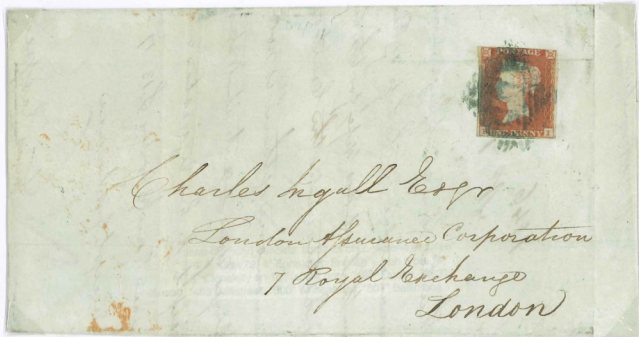 POSTAGE
ONE PENNY
Charles Ingall Esqr
London Assurance Corporation
7 Royal Exchange
London